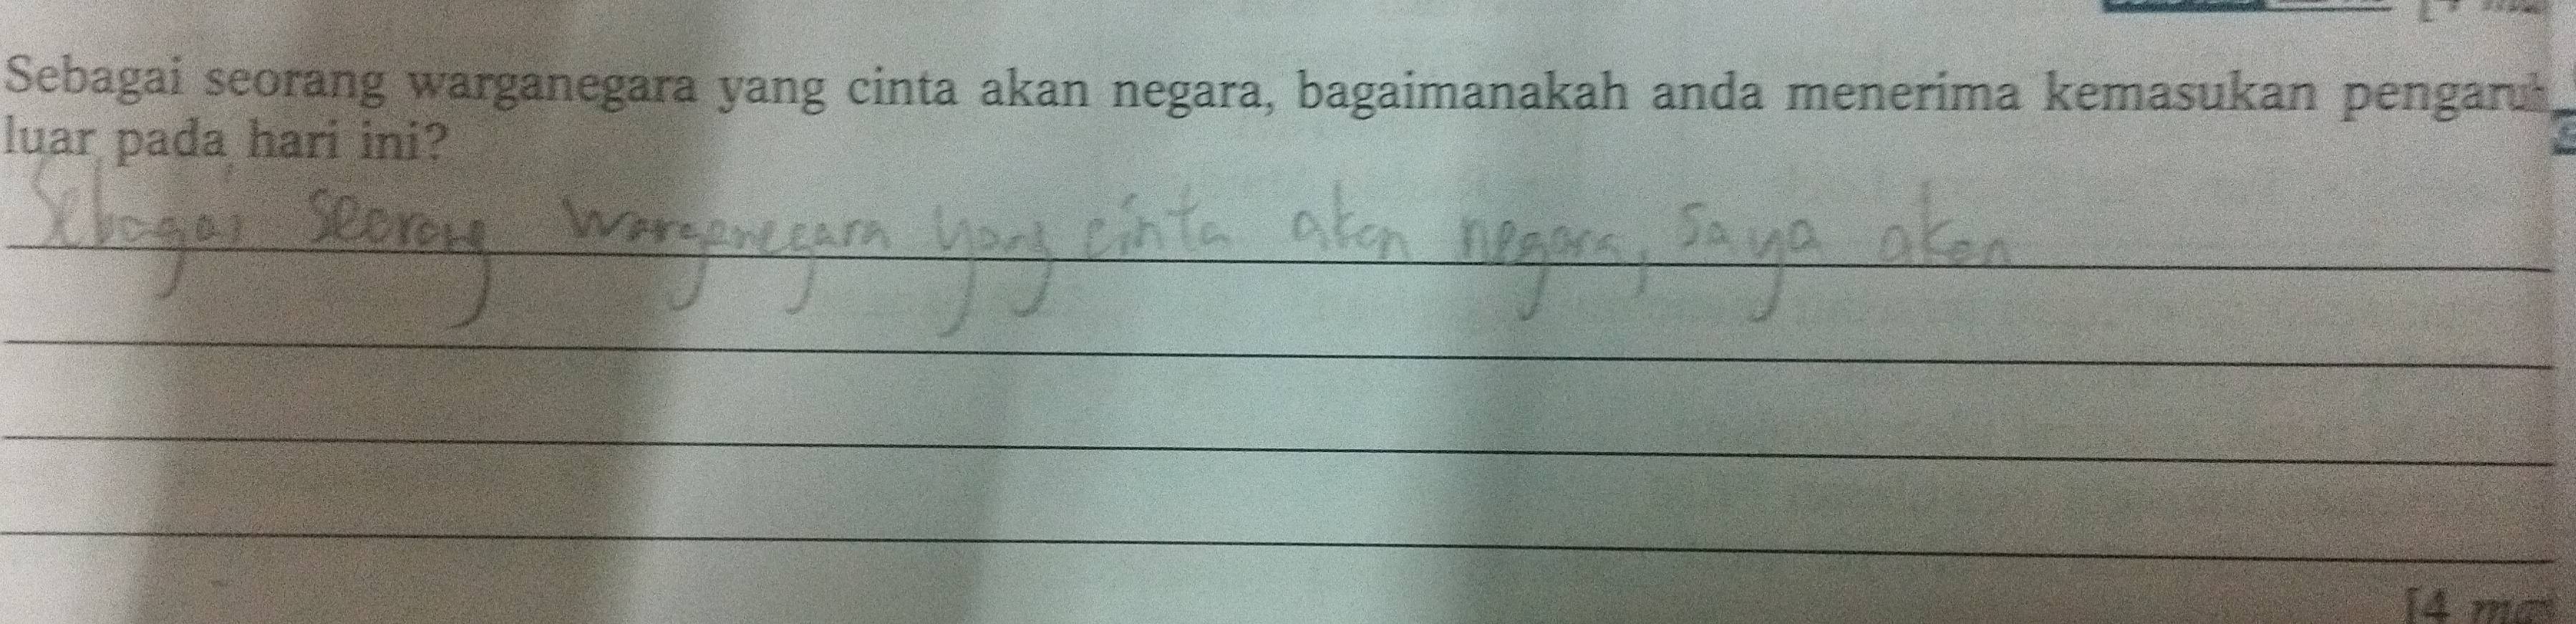 Sebagai seorang warganegara yang cinta akan negara, bagaimanakah anda menerima kemasukan pengaruh
luar pada hari ini?
Sebagai seorang warganegara yang cinta akan negara, saya akan
[4